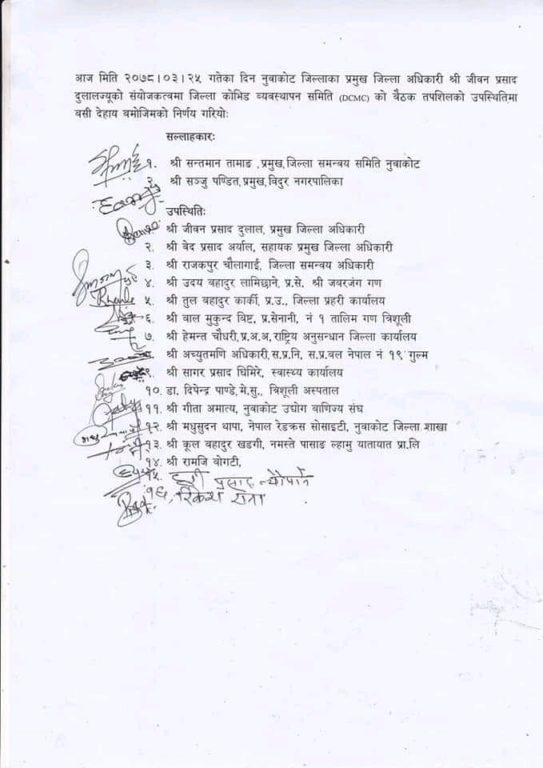 आज मिति २०७८।०३।२५ गतेका दिन नुवाकोट जिल्लाका प्रमुख जिल्ला अधिकारी श्री जीवन प्रसाद
दुलालज्यूको संयोजकत्वमा जिल्ला कोभिड व्यवस्थापन समिति (DCMC) को बैठक तपशिलको उपस्थितिमा
बसी देहाय बमोजिमको निर्णय गरियोः
सल्लाहकारः
१. श्री सन्तमान तामाङ ,प्रमुख,जिल्ला समन्वय समिति नुवाकोट
२. श्री सञ्जु पण्डित,प्रमुख,विदुर नगरपालिका
उपस्थितिः
श्री जीवन प्रसाद दुलाल, प्रमुख जिल्ला अधिकारी
२. श्री बेद प्रसाद अर्याल, सहायक प्रमुख जिल्ला अधिकारी
३. श्री राजकपुर चौलागाई, जिल्ला समन्वय अधिकारी
४. श्री उदय बहादुर लामिछाने, प्र.से. श्री जवरजंग गण
५. श्री तुल बहादुर कार्की, प्र.उ., जिल्ला प्रहरी कार्यालय
६. श्री बाल मुकुन्द विष्ट, प्र.सेनानी, नं १ तालिम गण त्रिशूली
७. श्री हेमन्त चौधरी,प्र.अ.अ,राष्ट्रिय अनुसन्धान जिल्ला कार्यालय
श्री अच्युतमणि अधिकारी,स.प्र.नि, स.प्र.वल नेपाल नं १९ गुल्म
९. श्री सागर प्रसाद घिमिरे, स्वास्थ्य कार्यालय
१०. डा. दिपेन्द्र पाण्डे,मे.सु., त्रिशूली अस्पताल
११. श्री गीता अमात्य, नुवाकोट उद्योग वाणिज्य संघ
१२. श्री मधुसुदन थापा, नेपाल रेडक्रस सोसाइटी, नुवाकोट जिल्ला शाखा
१३. श्री कूल बहादुर खडगी, नमस्ते पासाङ ल्हामु यातायात प्रा.लि
१४. श्री रामजि बोगटी,
१५. प्रसाद न्यौपाने
१६,